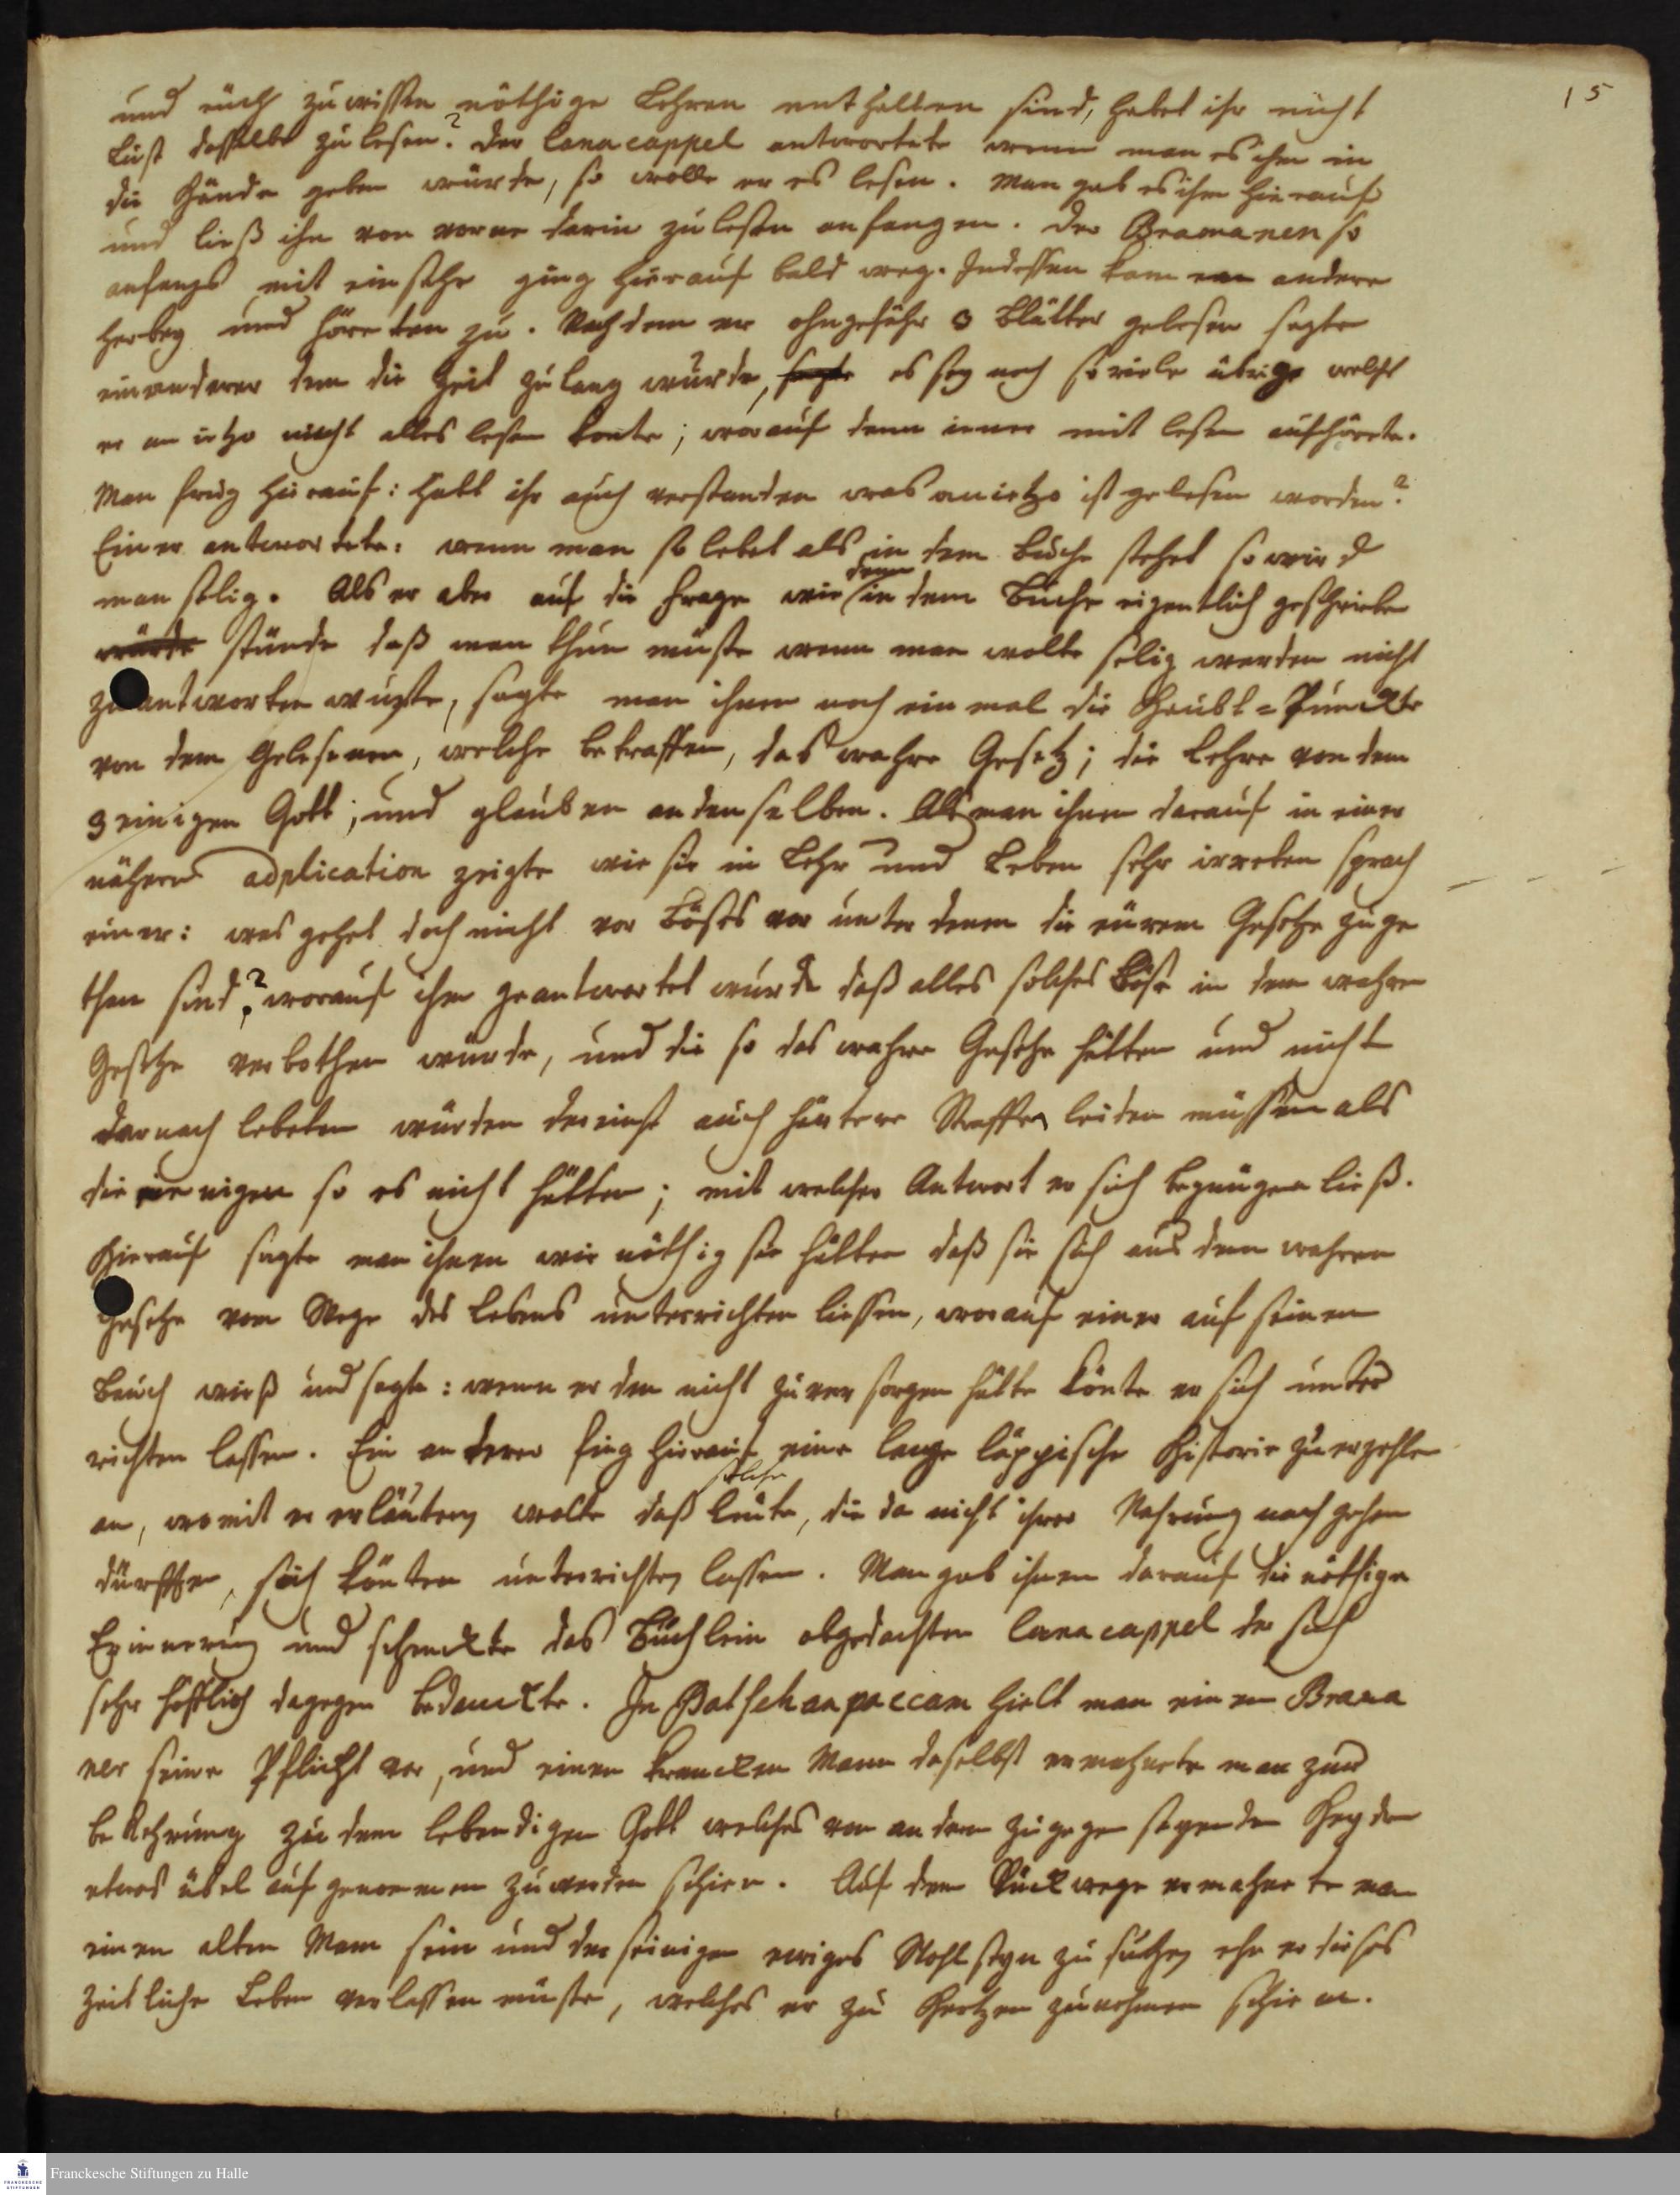 15
und euch zu wissen nöthige Lehren enthalten sind, habet ihr nicht
Lust dasselbe zu lesen? Der Canacappel antwortete wenn man es ihm in
die Hände geben würde, so wolle er es lesen. Man gab es ihm hierauf
und ließ ihn von vorne darin zu lesen anfangen. Der Bramanen so
anfangs mit einsehe ging hierauf bald weg. Indessen kam andere
herbey und höreten zu. Nachdem er ohngefähr 3 Blätter gelesen sagte
ein anderer dem die Zeit zu lang wurde, sagte es sey noch so viele übrige welche
er an ietzo nicht alles lesen konte; worauf denn iener mit lesen aufhörete.
Man frug hierauf: habt ihr auch verstanden was an ietzo ist gelesen worden?
Einer antwortete: wenn man so lebet als in dem Buche stehet so wird
man selig. Als er aber auf die Frage wie denn in dem Buche eigentlich geschrieben
würde stünde daß man thun müste wenn man wolte selig werden nicht
zu antworten wuste, sagte man ihnen noch ein mal die Haubt-Punckte
von dem Gelesenen, welche betraffen, das wahre Gesetz; die Lehre von dem
3einigen Gott; und glauben an denselben. Als man ihnen darauf in einer
nähern adplication zeigte wie sie in Lehr und Leben sehr irreten sprach
einer: was gehet doch nicht vor Böses vor unter denen die eurem Gesetze zuge
than sind? worauf ihm geantwortet wurde daß alles solches Böse in dem wahren
Gesetze verbothen würde, und die so das wahre Gesetze hätten und nicht
darnach lebeten würden dereinst auch härtere Straffen leiden müssen als
die ienigen so es nicht hätten; mit welcher Antwort er sich begnügen ließ.
Hierauf sagte man ihnen wie nöthig sie hätten daß sie sich aus dem wahren
Gesetze vom Wege des Lebens unterrichten liessen, worauf einer auf seinen
Bauch wieß und sagte: wenn er den nicht zu versorgen hätte könte er sich unter
richten lassen. Ein anderer fing hierauf eine lange läppische Historie zu erzehlen
an, womit er erläutern wolte daß solche Leute, die da nicht ihrer Nahrung nach gehen
dürfften, sich könten unterrichten lassen. Man gab ihnen darauf die nöthige
Erinnerung und schenckte das Büchlein obgedachten Canacappel der sich
sehr höfflich dagegen bedanckte. In Patschanpaccam hielt man einem Brama
ner seine Pflicht vor, und einen krancken Mann daselbst ermahnete man zur
bekehrung zu dem lebendigen Gott welches von andern zugegen seyenden Heyden
etwas übel aufgenommen zu werden schien. Auf dem Rückwege ermahnete man
einen alten Mann sein und der seinigen ewiges Wohlseyn zu suchen ehe er dieses
zeitliche Leben verlassen müste, welches er zu Hertzen zu nehmen schien.
Franckesche Stiftungen zu Halle